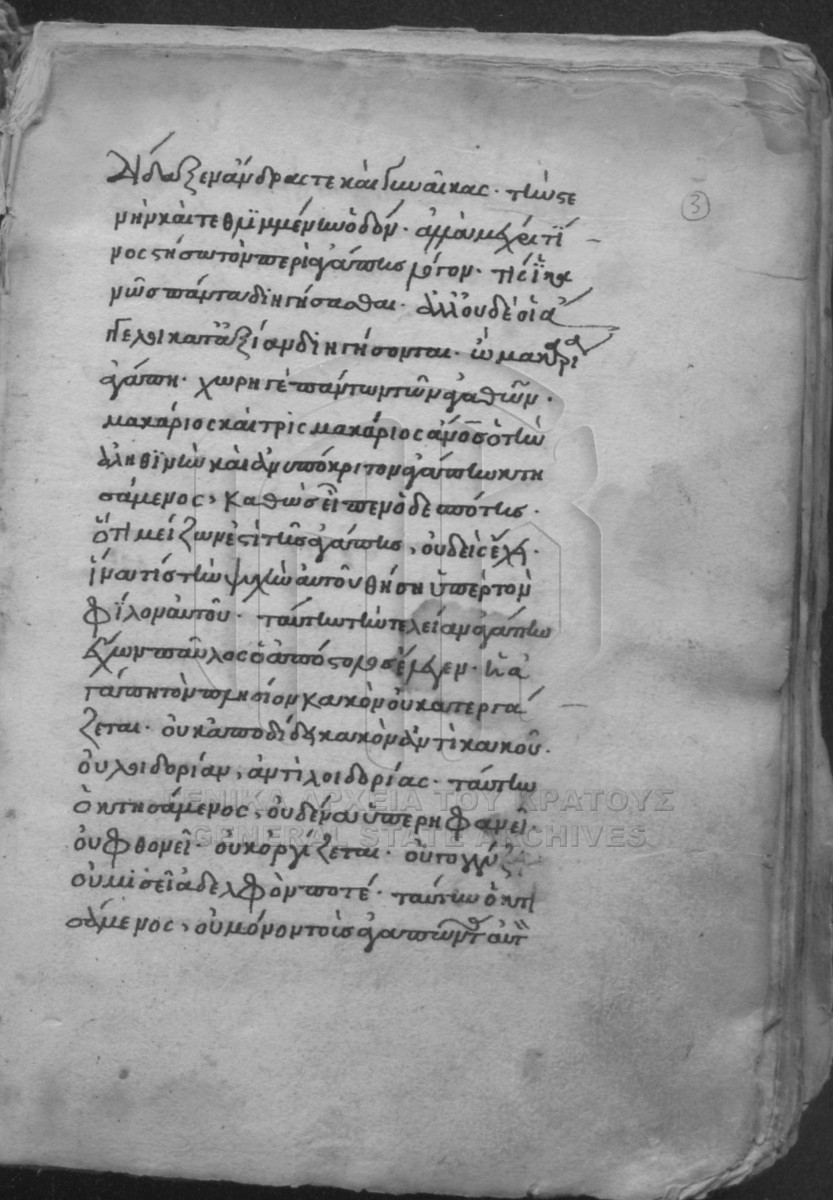 ἐδίδαξεν ἄνδρας τε καὶ γυναῖκας· τὴν στε
νὴν καὶ τεθλιμμένην ὁδόν· ἀλλὰ μέχρι τί
νος στήσω τὸν περὶ ἀγάπης λόγον· τίς
πάντα διηγήσασθαι· ἀλλ' οὐδὲ οἱ ἄ
γγελοι κατ' ἀξίαν διηγήσονται· ὦ μακαρία
ἀγάπη· χωρηγὲ πάντων τῶν ἀγαθῶν·
μακάριος καὶ τρὶς μακάριος ἄνος ὁ τὴν
ἀληθινὴν καὶ ἀνυπόκριτον ἀγάπην κτη
σάμενος, καθὼς εἶπεν ὁ δεσπότης·
ὅτι μείζων ἐστὶ τῆς ἀγάπης, οὐδεὶς ἔχει·
ἵνα τίς τὴν ψυχὴν αὐτοῦ θήση ὑπὲρ τὸν
φίλον αὐτοῦ· ταύτην τὴν τελείαν ἀγάπην
ἔχων παῦλος ὁ ἀπόστολος ἔλεγεν· ἡ ἀ
γάπη τὸν πλησίον κακὸν οὐ κατεργά
ζεται· οὐκ ἀποδίδει κακὸν ἀντὶ κακοῦ·
οὐ λοιδορίαν, ἀντὶ λοιδορίας· ταύτην
ὁ κτησάμενος, οὐδένα ὑπερηφανεῖ·
οὐ φθονεῖ· οὐκ ὀργίζεται· οὐ γογγύζει
οὐ μισεῖ ἀδελφὸν ποτέ· ταύτην ὁ κτη
σάμενος, οὐ μόνον τοὺς ἀγαπῶντας αὐτ
3
ΓΕΝΙΚΑ ΑΡΧΕΙΑ ΤΟΥ ΚΡΑΤΟΥΣ
GENERAL STATE ARCHIVES